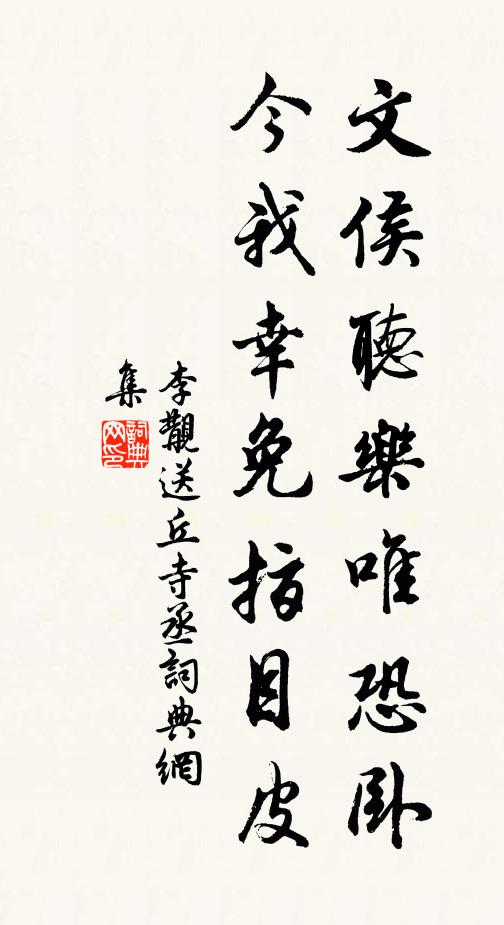 文侯聽樂唯恐臥
今我幸免指目皮
李覯送丘寺丞詞典網
集
詞典
网印